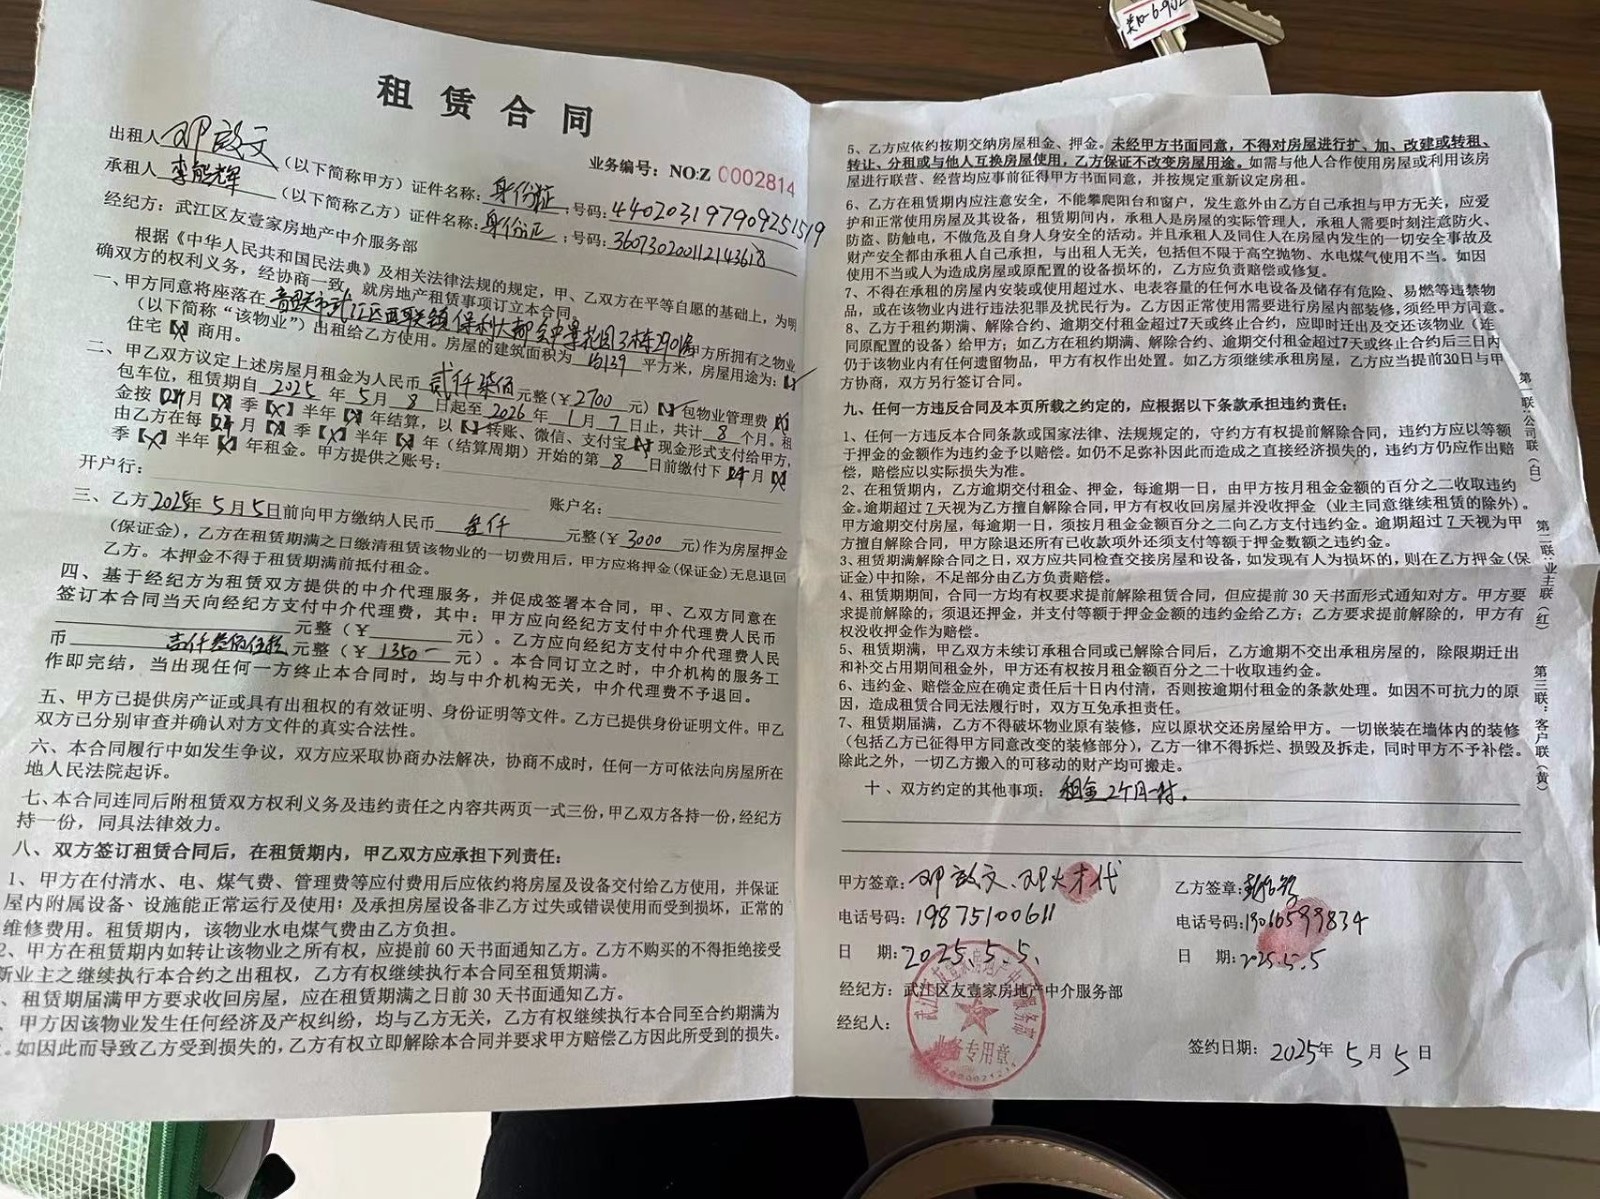 租赁合同
业务编号：NO:Z 0002814
出租人 邓政文（以下简称甲方）证件名称：身份证；号码：440203197909251519
承租人 （以下简称乙方）证件名称：身份证；号码：360730200112143618
经纪方：武江区友壹家房地产中介服务部
根据《中华人民共和国民法典》及相关法律法规的规定，甲、乙双方在平等自愿的基础上，为明
确双方的权利义务，经协商一致，就房地产租赁事项订立本合同。
一、甲方同意将座落在 韶关市武江区西联镇保利大都会中 花园3栋2901房甲方所拥有之物业
（以下简称“该物业”）出租给乙方使用。房屋的建筑面积为 约139 平方米，房屋用途为：【✓】
住宅【×】商用。
二、甲乙双方议定上述房屋月租金为人民币 贰仟柒佰 元整（￥2700 元）【】包物业管理费【×】
包车位，租赁期自 2025 年 5 月 8 日起至 2026 年 1 月 7 日止，共计 8 个月。租
金按【2个】月【×】季【×】半年【×】年结算，以【】转账、微信、支付宝【】现金形式支付给甲方，
由乙方在每【2个】月【×】季【×】半年【×】年（结算周期）开始的第 8 日前缴付下【2个】月【×】
季【×】半年【×】年租金。甲方提供之账号：
开户行： 账户名：
三、乙方 2025年 5 月 5 日前向甲方缴纳人民币 叁仟 元整（￥3000 元)作为房屋押金
(保证金)，乙方在租赁期满之日缴清租赁该物业的一切费用后，甲方应将押金(保证金)无息退回
乙方。本押金不得于租赁期满前抵付租金。
四、基于经纪方为租赁双方提供的中介代理服务，并促成签署本合同，甲、乙双方同意在
签订本合同当天向经纪方支付中介代理费，其中：甲方应向经纪方支付中介代理费人民币
元整（￥ 元）。乙方应向经纪方支付中介代理费人民
币 壹仟叁佰伍拾 元整（￥1350 元）。本合同订立之时，中介机构的服务工
作即完结，当出现任何一方终止本合同时，均与中介机构无关，中介代理费不予退回。
五、甲方已提供房产证或具有出租权的有效证明、身份证明等文件。乙方已提供身份证明文件。甲乙
双方已分别审查并确认对方文件的真实合法性。
六、本合同履行中如发生争议，双方应采取协商办法解决，协商不成时，任何一方可依法向房屋所在
地人民法院起诉。
七、本合同连同后附租赁双方权利义务及违约责任之内容共两页一式三份，甲乙双方各持一份，经纪方
持一份，同具法律效力。
八、双方签订租赁合同后，在租赁期内，甲乙双方应承担下列责任：
1、甲方在付清水、电、煤气费、管理费等应付费用后应依约将房屋及设备交付给乙方使用，并保证
屋内附属设备、设施能正常运行及使用；及承担房屋设备非乙方过失或错误使用而受到损坏，正常的
维修费用。租赁期内，该物业水电煤气费由乙方负担。
2、甲方在租赁期内如转让该物业之所有权，应提前 60 天书面通知乙方。乙方不购买的不得拒绝接受
新业主之继续执行本合约之出租权，乙方有权继续执行本合同至租赁期满。
、租赁期届满甲方要求收回房屋，应在租赁期满之日前 30 天书面通知乙方。
、甲方因该物业发生任何经济及产权纠纷，均与乙方无关，乙方有权继续执行本合同至合约期满为
。如因此而导致乙方受到损失的，乙方有权立即解除本合同并要求甲方赔偿乙方因此所受到的损失。
5、乙方应依约按期交纳房屋租金、押金。未经甲方书面同意，不得对房屋进行扩、加、改建或转租、
转让、分租或与他人互换房屋使用，乙方保证不改变房屋用途。如需与他人合作使用房屋或利用该房
屋进行联营、经营均应事前征得甲方书面同意，并按规定重新议定房租。
6、乙方在租赁期内应注意安全，不能攀爬阳台和窗户，发生意外由乙方自己承担与甲方无关，应爱
护和正常使用房屋及其设备，租赁期间内，承租人是房屋的实际管理人，承租人需要时刻注意防火、
防盗、防触电，不做危及自身人身安全的活动。并且承租人及同住人在房屋内发生的一切安全事故及
财产安全都由承租人自己承担，与出租人无关，包括但不限于高空抛物、水电煤气使用不当。如因
使用不当或人为造成房屋或原配置的设备损坏的，乙方应负责赔偿或修复。
7、不得在承租的房屋内安装或使用超过水、电表容量的任何水电设备及储存有危险、易燃等违禁物
品，或在该物业内进行违法犯罪及扰民行为。乙方因正常使用需要进行房屋内部装修，须经甲方同意。
8、乙方于租约期满、解除合约、逾期交付租金超过7天或终止合约，应即时迁出及交还该物业（连
同原配置的设备）给甲方；如乙方在租约期满、解除合约、逾期交付租金超过7天或终止合约后三日内
仍于该物业内有任何遗留物品，甲方有权作出处置。如乙方须继续承租房屋，乙方应当提前30日与甲
方协商，双方另行签订合同。
九、任何一方违反合同及本页所载之约定的，应根据以下条款承担违约责任：
1、任何一方违反本合同条款或国家法律、法规规定的，守约方有权提前解除合同，违约方应以等额
于押金的金额作为违约金予以赔偿。如仍不足弥补因此而造成之直接经济损失的，违约方仍应作出赔
偿，赔偿应以实际损失为准。
2、在租赁期内，乙方逾期交付租金、押金，每逾期一日，由甲方按月租金金额的百分之二收取违约
金。逾期超过 7 天视为乙方擅自解除合同，甲方有权收回房屋并没收押金（业主同意继续租赁的除外）。
甲方逾期交付房屋，每逾期一日，须按月租金金额百分之二向乙方支付违约金。逾期超过 7 天视为甲
方擅自解除合同，甲方除退还所有已收款项外还须支付等额于押金数额之违约金。
3、租赁期满解除合同之日，双方应共同检查交接房屋和设备，如发现有人为损坏的，则在乙方押金(保
证金)中扣除，不足部分由乙方负责赔偿。
4、租赁期期间，合同一方均有权要求提前解除租赁合同，但应提前 30 天书面形式通知对方。甲方要
求提前解除的，须退还押金，并支付等额于押金金额的违约金给乙方；乙方要求提前解除的，甲方有
权没收押金作为赔偿。
5、租赁期满，甲乙双方未续订承租合同或已解除合同后，乙方逾期不交出承租房屋的，除限期迁出
和补交占用期间租金外，甲方还有权按月租金金额百分之二十收取违约金。
6、违约金、赔偿金应在确定责任后十日内付清，否则按逾期付租金的条款处理。如因不可抗力的原
因，造成租赁合同无法履行时，双方互免承担责任。
7、租赁期届满，乙方不得破坏物业原有装修，应以原状交还房屋给甲方。一切嵌装在墙体内的装修
（包括乙方已征得甲方同意改变的装修部分），乙方一律不得拆烂、损毁及拆走，同时甲方不予补偿。
除此之外，一切乙方搬入的可移动的财产均可搬走。
十、双方约定的其他事项：租金2个月一付。
甲方签章：邓政文、邓火 代
乙方签章：
电话号码：19875100611
电话号码：19016599834
日 期：2025.5.5.
日 期：2025.5.5
经纪方：武江区友壹家房地产中介服务部
经纪人：
业务专用章
签约日期：2025年 5 月 5 日
第一联：公司联（白）
第二联：业主联（红）
第三联：客户联（黄）